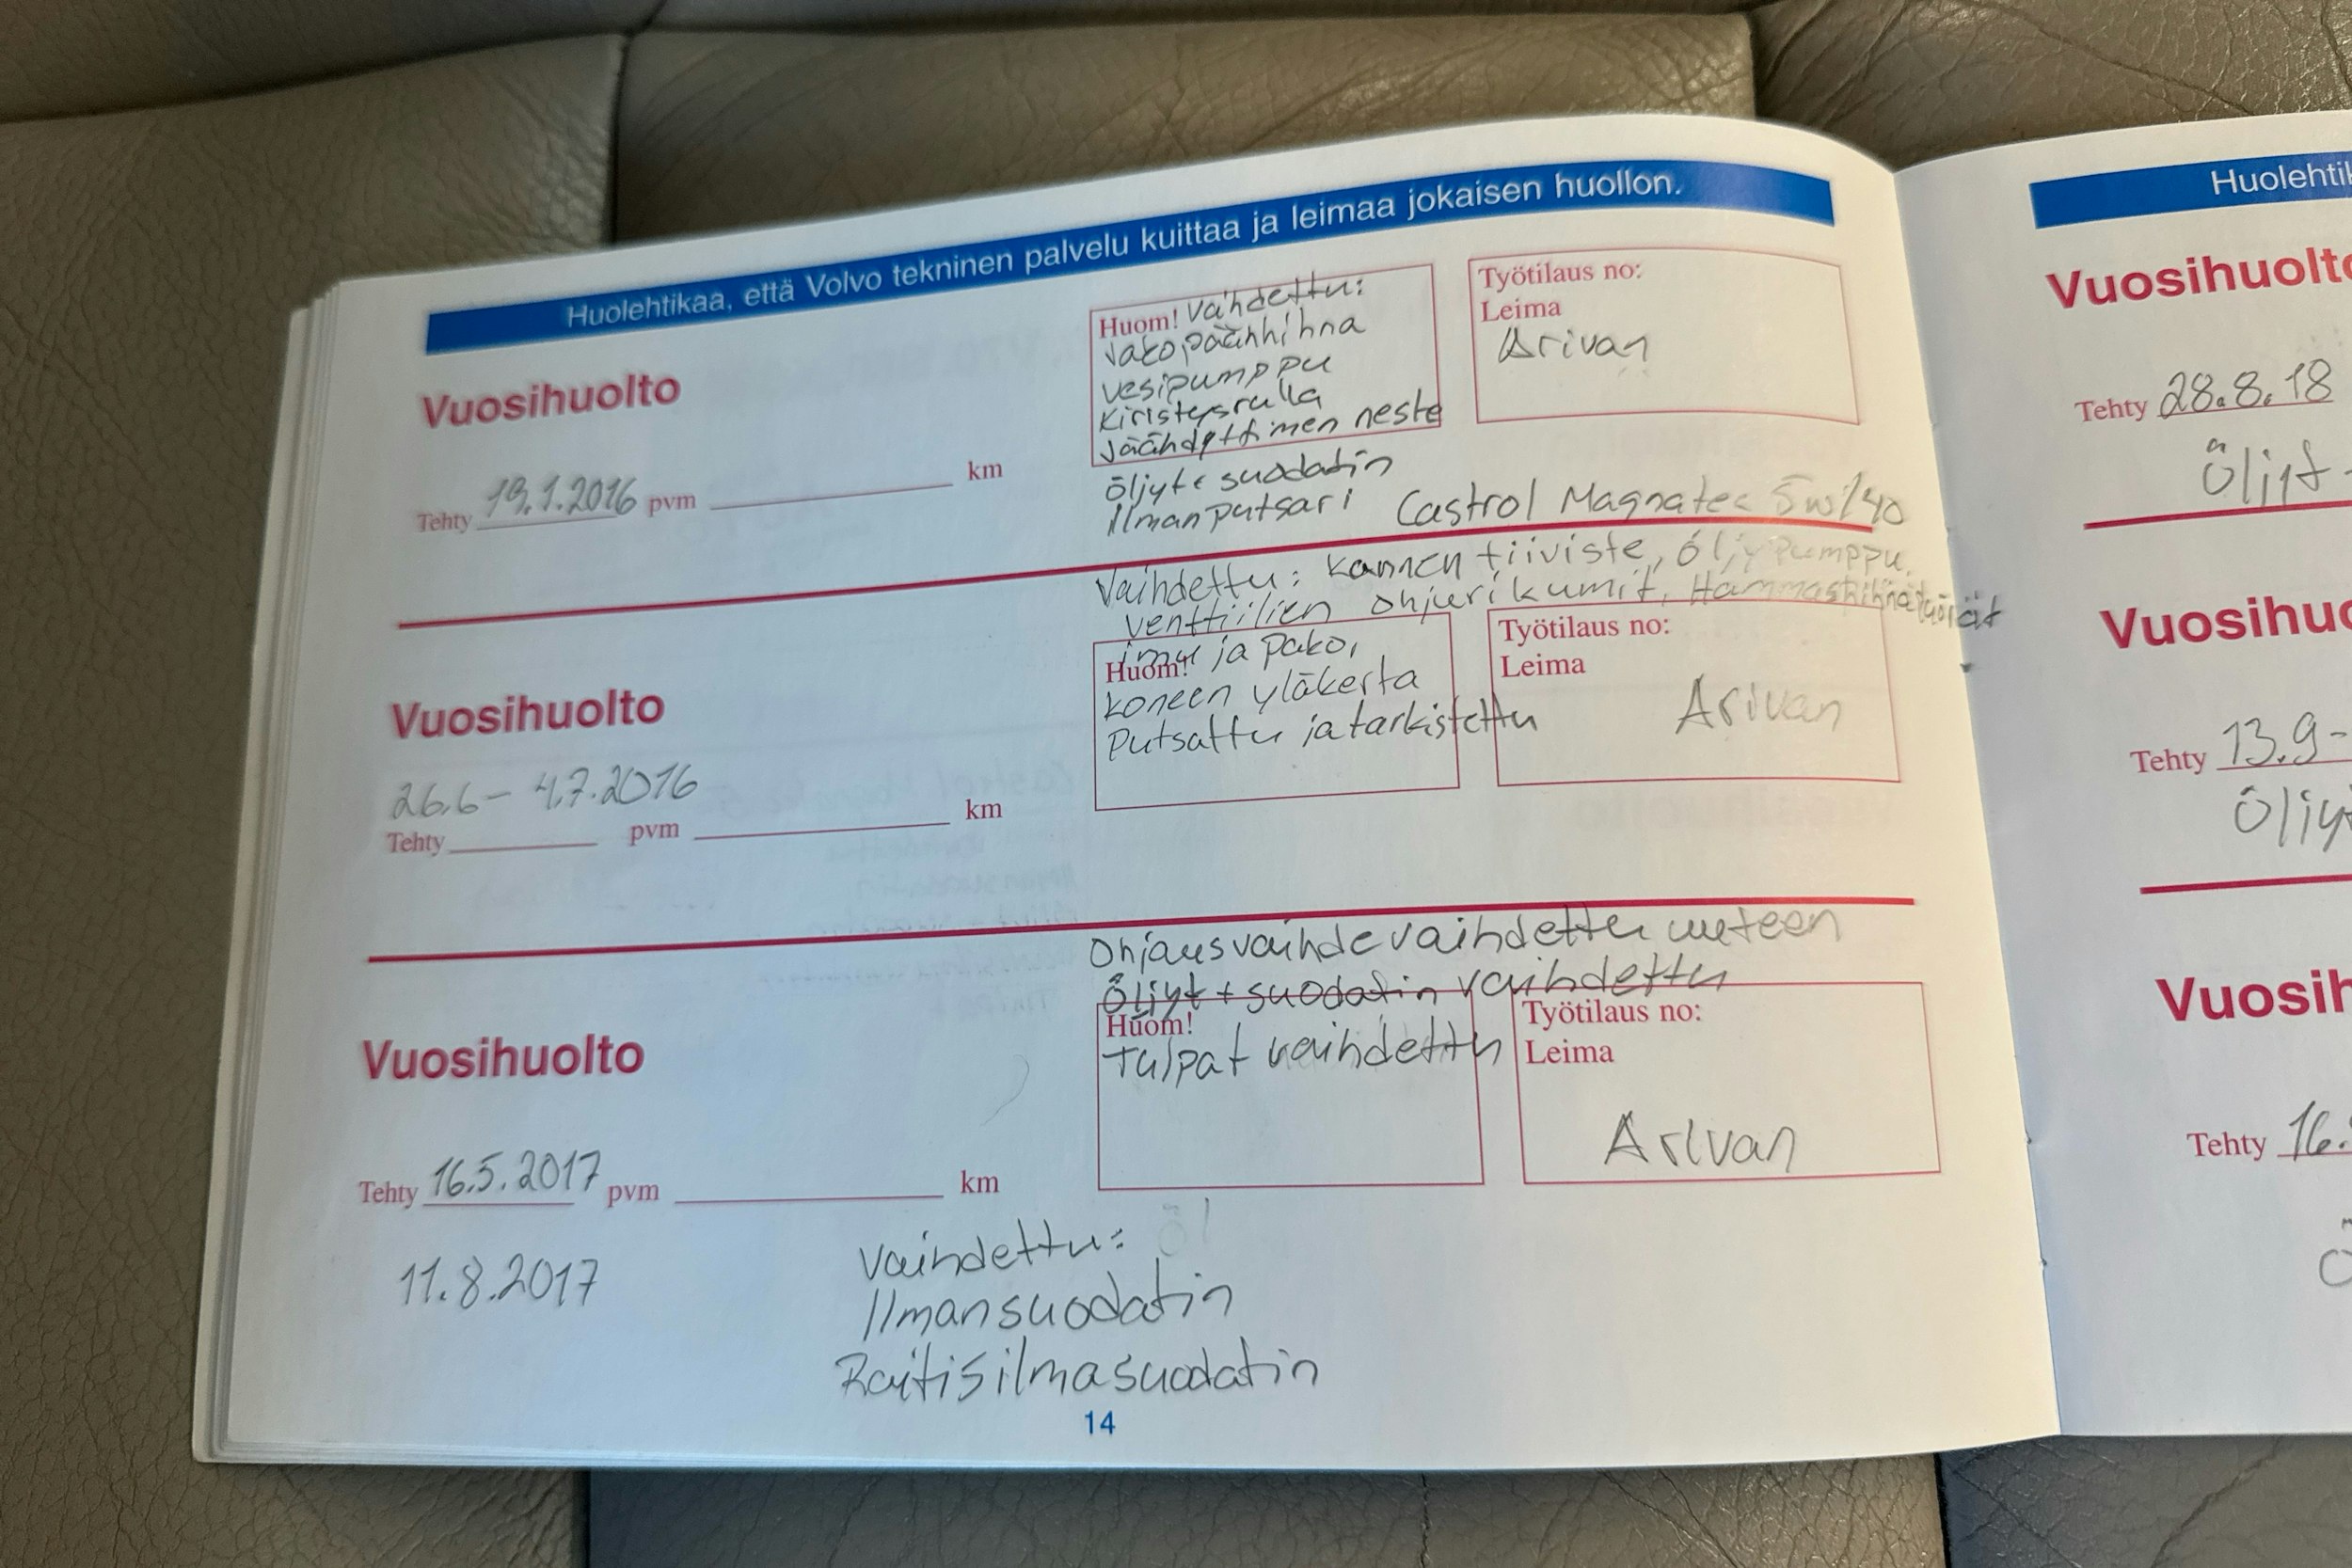 Huolehtikaa, että Volvo tekninen palvelu kuittaa ja leimaa jokaisen huollon.
Vuosihuolto
Tehty 19.1.2016 pvm km
Huom! Vaihdettu:
Jakopäänhihna
vesipumppu
Kiristysrulla
Jäähdyttimen neste
öljyt + suodatin
Ilmanputsari
Castrol Magnatec 5w/40
Työtilaus no:
Leima
Arivan
Vaihdettu: kannen tiiviste, öljypumppu,
venttiilien ohjurikumit, Hammashihnapyörät
imu ja pako,
Huom!
koneen yläkerta
Putsattu ja tarkistettu
Vuosihuolto
26.6 - 4.7.2016
Tehty pvm km
Työtilaus no:
Leima
Arivan
Ohjausvaihde vaihdettu uuteen
Öljyt + suodatin vaihdettu
Huom!
Tulpat vaihdettu
Vuosihuolto
Tehty 16.5.2017 pvm km
Työtilaus no:
Leima
Arivan
11.8.2017
Vaihdettu:
Ilmansuodatin
Raitisilmasuodatin
14
Huolehtik
Vuosihuolto
Tehty 28.8.18
Öljyt
Vuosihuo
Tehty 13.9-
Öljy
Vuosih
Tehty 16.